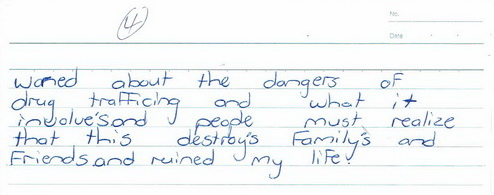 4
No.
Date
waned about the dangers of
drug trafficing and what it
involve's and people must realize
that this destroy's Family's and
Friends and ruined my life.